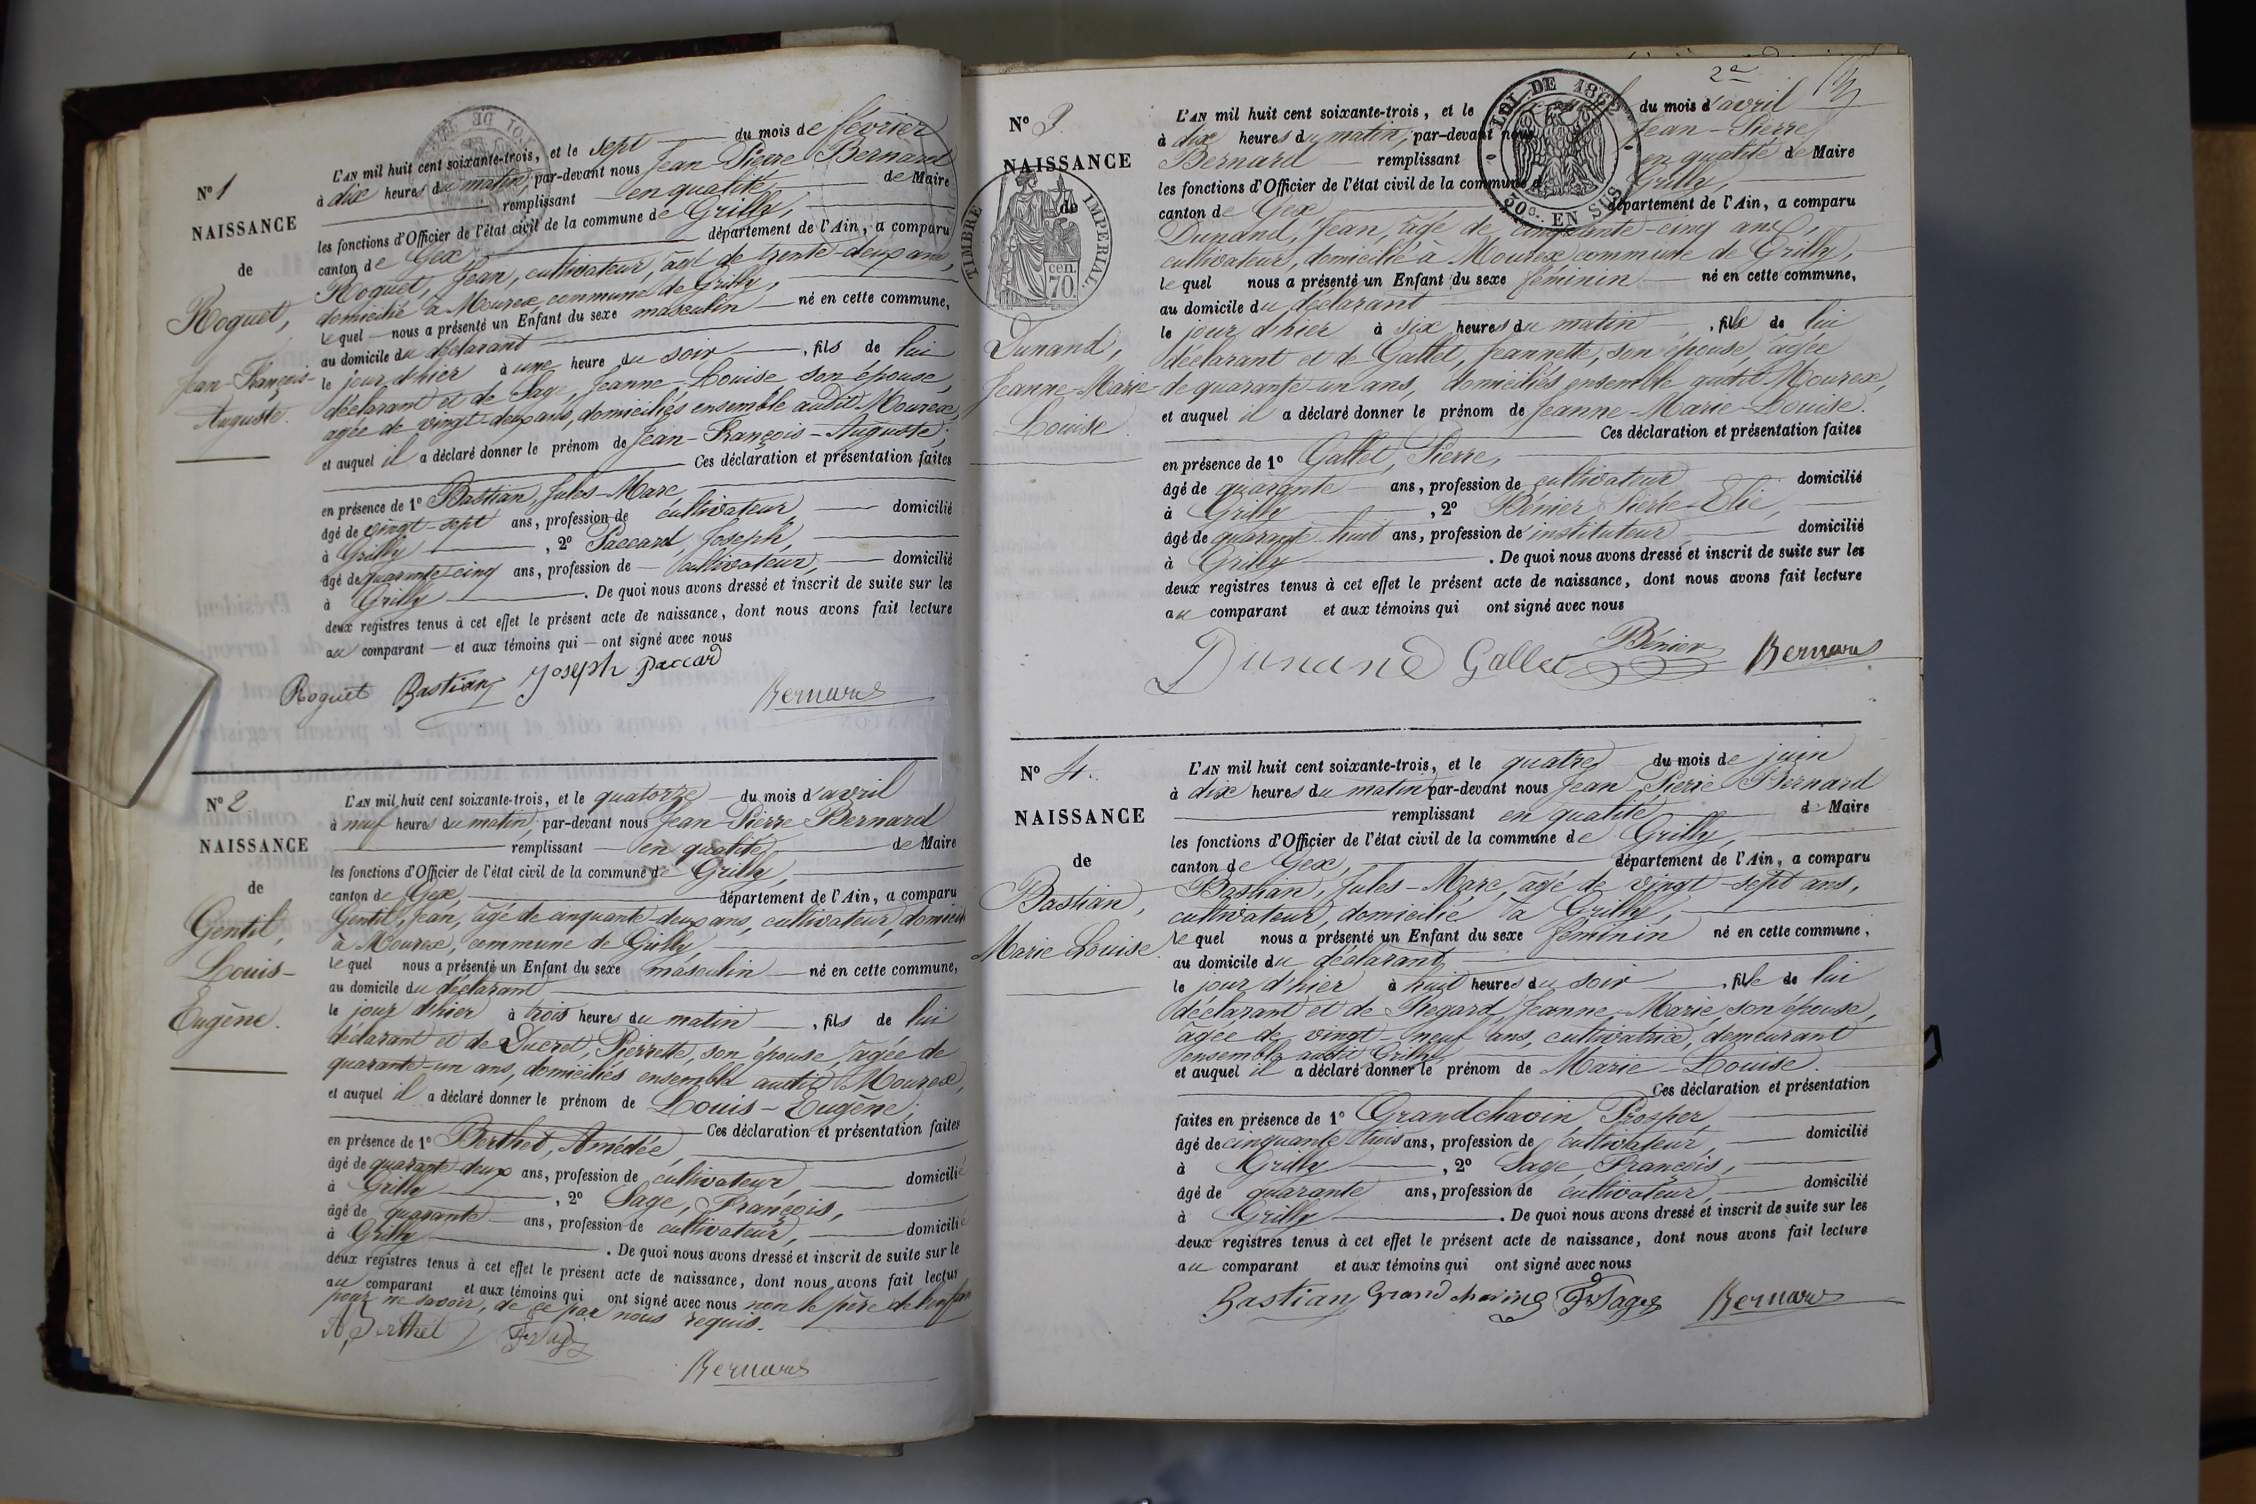 N° 1
NAISSANCE
de
Roquet,
Jean-François-
Auguste.
L'AN mil huit cent soixante-trois, et le sept du mois de février
à dix heures du matin, par-devant nous Jean Pierre Bernard
remplissant en qualité de Maire
les fonctions d'Officier de l'état civil de la commune de Grilly,
canton de Gex département de l'Ain, a comparu
Roquet, Jean, cultivateur, âgé de trente-deux ans,
domicilié à Mourex commune de Grilly,
lequel nous a présenté un Enfant du sexe masculin né en cette commune,
au domicile du déclarant
le jour d'hier à une heure du soir, fils de lui
déclarant et de Sage, Jeanne-Louise son épouse,
agée de vingt-deux ans, domiciliés ensemble audit Mourex,
et auquel il a déclaré donner le prénom de Jean-François-Auguste,
Ces déclaration et présentation faites
en présence de 1° Bastian, Jules-Marc
âgé de vingt-sept ans, profession de cultivateur domicilié
à Grilly, 2° Paccard, Joseph,
âgé de quarante cinq ans, profession de cultivateur, domicilié
à Grilly. De quoi nous avons dressé et inscrit de suite sur les
deux registres tenus à cet effet le présent acte de naissance, dont nous avons fait lecture
au comparant et aux témoins qui ont signé avec nous
Roquet Bastian Joseph Paccard
Bernard
N° 2
NAISSANCE
de
Gentil,
Louis-
Eugène.
L'AN mil huit cent soixante-trois, et le quatorze du mois d'avril
à neuf heures du matin, par-devant nous Jean-Pierre Bernard
remplissant en qualité de Maire
les fonctions d'Officier de l'état civil de la commune de Grilly,
canton de Gex, département de l'Ain, a comparu
Gentil, Jean, âgé de cinquante-deux ans, cultivateur, domicilié
à Mourex, commune de Grilly,
lequel nous a présenté un Enfant du sexe masculin né en cette commune,
au domicile du déclarant
le jour d'hier à trois heures du matin, fils de lui
déclarant et de Ducret, Pierrette, son épouse, âgée de
quarante-un ans, domiciliés ensemble audit Mourex,
et auquel il a déclaré donner le prénom de Louis-Eugène,
Ces déclaration et présentation faites
en présence de 1° Berthet, Amédée,
âgé de quarante deux ans, profession de cultivateur, domicilié
à Grilly, 2° Sage, François,
âgé de quarante ans, profession de cultivateur, domicilié
à Grilly. De quoi nous avons dressé et inscrit de suite sur le
deux registres tenus à cet effet le présent acte de naissance, dont nous avons fait lectur
au comparant et aux témoins qui ont signé avec nous non le père de l'enfan
pour ne savoir, de ce par nous requis.
A. Berthet Fs Sage
Bernard
2e
N° 3.
NAISSANCE
de
TIMBRE IMPERIAL
70 cen.
Dunand,
Jeanne-Marie-
Louise.
LOI DE 1862
50c. EN SUS
L'AN mil huit cent soixante-trois, et le du mois d'avril
à dix heures du matin, par-devant nous Jean-Pierre
Bernard remplissant en qualité de Maire
les fonctions d'Officier de l'état civil de la commune d Grilly,
canton de Gex département de l'Ain, a comparu
Dunand, Jean, âgé de cinquante-cinq ans,
cultivateur, domicilié à Mourex commune de Grilly,
lequel nous a présenté un Enfant du sexe féminin né en cette commune,
au domicile du déclarant
le jour d'hier à six heures du matin, fille de lui
déclarant et de Gallet, Jeannette, son épouse, âgée
de quarante-un ans, domiciliés ensemble audit Mourex,
et auquel il a déclaré donner le prénom de Jeanne-Marie-Louise.
Ces déclaration et présentation faites
en présence de 1° Gallet, Pierre,
âgé de quarante ans, profession de cultivateur domicilié
à Grilly, 2° Bénier Pierre-Elie,
âgé de quarante-huit ans, profession de instituteur domicilié
à Grilly. De quoi nous avons dressé et inscrit de suite sur les
deux registres tenus à cet effet le présent acte de naissance, dont nous avons fait lecture
au comparant et aux témoins qui ont signé avec nous
Dunand Gallet Bénier Bernard
N° 4.
NAISSANCE
de
Bastian,
Marie Louise.
L'AN mil huit cent soixante-trois, et le quatre du mois de juin
à dix heures du matin par-devant nous Jean Pierre Bernard
remplissant en qualité de Maire
les fonctions d'Officier de l'état civil de la commune de Grilly,
canton de Gex, département de l'Ain, a comparu
Bastian, Jules-Marc, âgé de vingt-sept ans,
cultivateur, domicilié à Grilly,
lequel nous a présenté un Enfant du sexe féminin né en cette commune,
au domicile du déclarant
le jour d'hier à huit heures du soir, fille de lui
déclarant et de Regard, Jeanne-Marie, son épouse,
âgée de vingt-neuf ans, cultivatrice, demeurant
ensemble audit Grilly
et auquel il a déclaré donner le prénom de Marie-Louise.
Ces déclaration et présentation
faites en présence de 1° Grandchavin Prosper,
âgé de cinquante trois ans, profession de cultivateur, domicilié
à Grilly, 2° Sage François,
âgé de quarante ans, profession de cultivateur, domicilié
à Grilly. De quoi nous avons dressé et inscrit de suite sur les
deux registres tenus à cet effet le présent acte de naissance, dont nous avons fait lecture
au comparant et aux témoins qui ont signé avec nous
Bastian Grandchavin Fs Sage Bernard